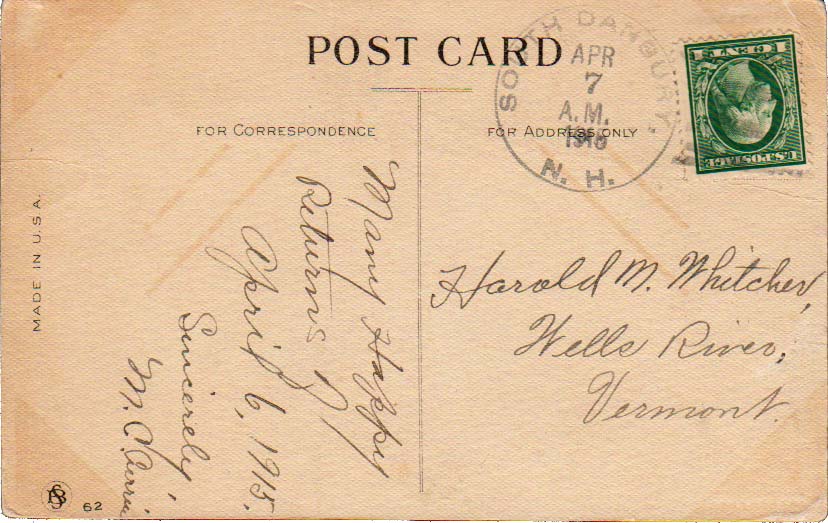 POST CARD
SOUTH DANBURY,
APR
7
A.M.
N. H.
1 CENT 1
U.S. POSTAGE
FOR CORRESPONDENCE
FOR ADDRESS ONLY
Many Happy
Returns
April 6, 1915.
Sincerely,
M. C.
Harold M. Whitcher,
Wells River,
Vermont.
MADE IN U.S.A.
62